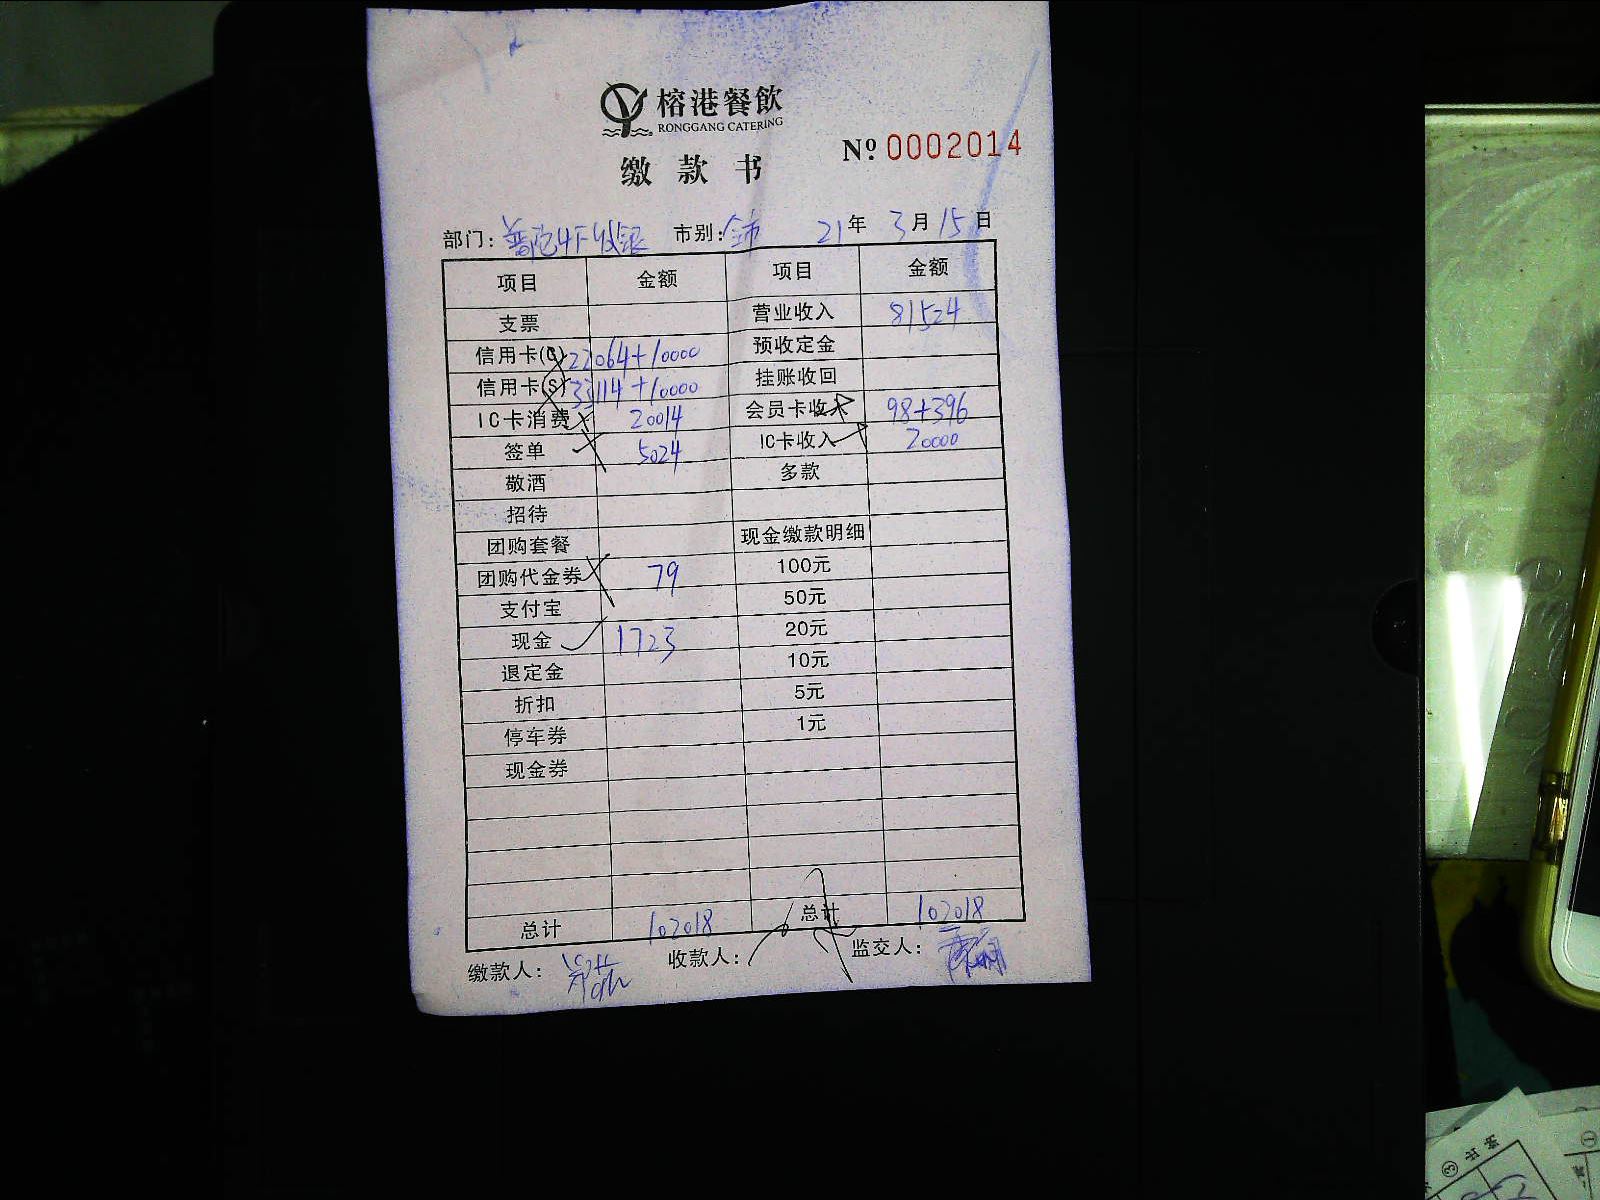 榕港餐飲
RONGGANG CATERING
缴款书
№ 0002014
部门: 普陀4F收银 市别: 全市 21年 3月 15日
项目 金额 项目 金额
支票 营业收入 81524
信用卡(C) 22064+10000 预收定金
信用卡(S) 33114+10000 挂账收回
IC卡消费 20014 会员卡收入 98+396
签单 5024 IC卡收入 20000
敬酒 多款
招待
团购套餐 现金缴款明细
团购代金券 79 100元
支付宝 50元
现金 1723 20元
退定金 10元
折扣 5元
停车券 1元
现金券
总计 102018 总计 102018
缴款人: 收款人: 监交人: